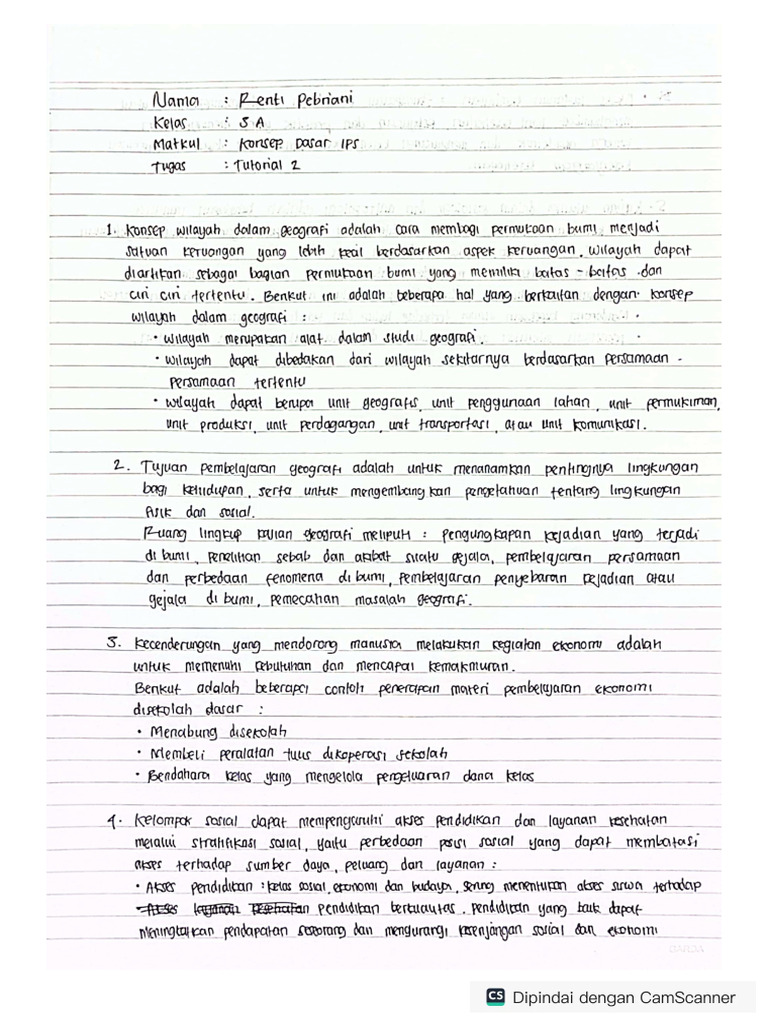 Nama : Renti Pebriani
Kelas : 3 A
Matkul : Konsep Dasar IPS
Tugas : Tutorial 2
1. Konsep wilayah dalam geografi adalah cara membagi permukaan bumi, menjadi
satuan keruangan yang lebih kecil berdasarkan aspek keruangan. Wilayah dapat
diartikan sebagai bagian permukaan bumi yang memiliki batas-batas dan
ciri ciri tertentu. Berikut ini adalah beberapa hal yang berkaitan dengan konsep
wilayah dalam geografi :
• Wilayah merupakan alat dalam studi geografi.
• Wilayah dapat dibedakan dari wilayah sekitarnya berdasarkan persamaan -
persamaan tertentu
• Wilayah dapat berupa unit geografis, unit penggunaan lahan, unit permukiman,
unit produksi, unit perdagangan, unit transportasi, atau unit komunikasi.
2. Tujuan pembelajaran geografi adalah untuk menanamkan pentingnya lingkungan
bagi kehidupan, serta untuk mengembangkan pengetahuan tentang lingkungan
fisik dan sosial.
Ruang lingkup kajian geografi meliputi : pengungkapan kejadian yang terjadi
di bumi, penelitian sebab dan akibat suatu gejala, pembelajaran persamaan
dan perbedaan fenomena di bumi, pembelajaran penyebaran kejadian atau
gejala di bumi, pemecahan masalah geografi.
3. Kecenderungan yang mendorong manusia melakukan kegiatan ekonomi adalah
untuk memenuhi kebutuhan dan mencapai kemakmuran.
Berikut adalah beberapa contoh penerapan materi pembelajaran ekonomi
disekolah dasar :
• Menabung disekolah
• Membeli peralatan tulis dikoperasi sekolah
• Bendahara kelas yang mengelola pengeluaran dana kelas
4. Kelompok sosial dapat mempengaruhi akses pendidikan dan layanan kesehatan
melalui stratifikasi sosial, yaitu perbedaan posisi sosial yang dapat membatasi
akses terhadap sumber daya, peluang dan layanan :
• Akses pendidikan : kelas sosial, ekonomi dan budaya, sering menentukan akses siswa terhadap
Akses layanan kesehatan pendidikan berkualitas. Pendidikan yang baik dapat
meningkatkan pendapatan seseorang dan mengurangi kesenjangan sosial dan ekonomi
CS Dipindai dengan CamScanner